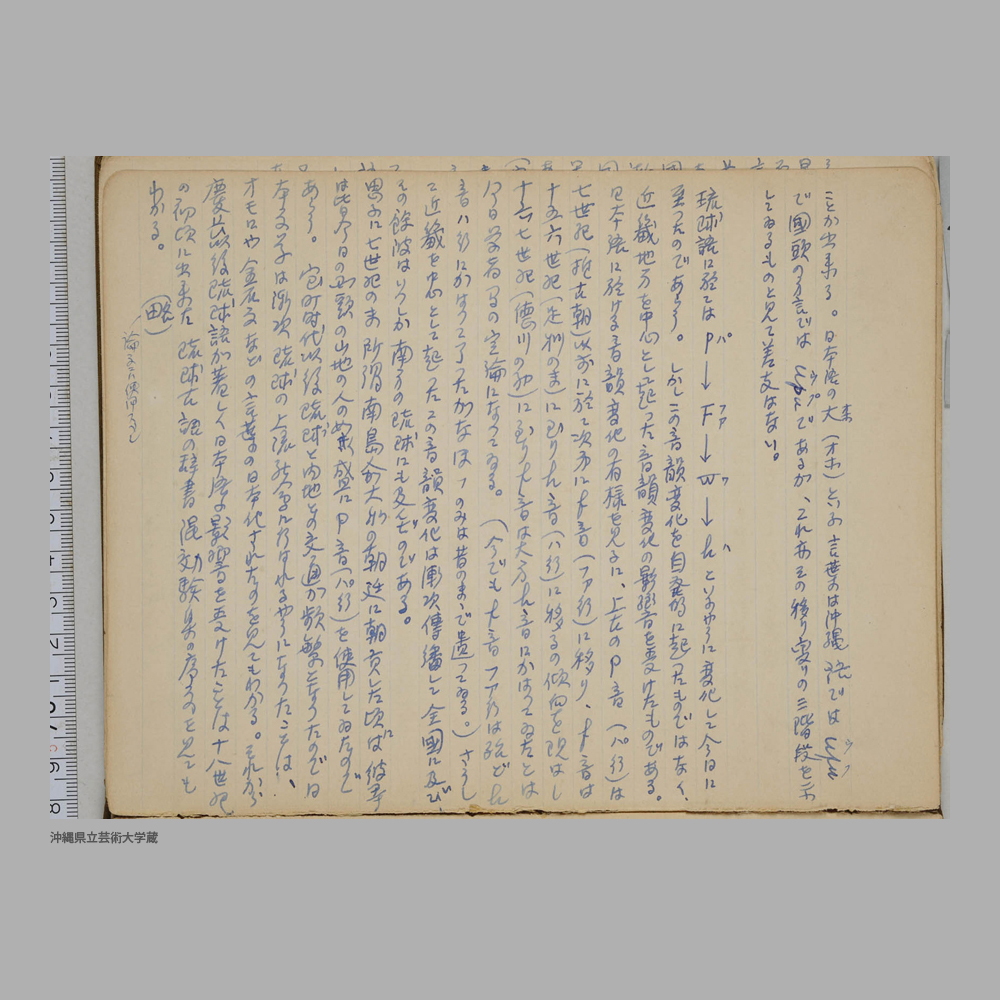 ことが出来る。日本語の大(オホ)と云ふ言葉は沖縄語では
で國頭の方言では であるが、これ亦その移り変りの三階段を示
してゐるものと見て差支はない。
琉球語に於ては P(パ)→F(ファ)→W(ワ)→h(ハ)といふやうに変化して今日に
至つたのであらう。しかしこの音韻変化を自発的に起つたものではなく、
近畿地方を中心として起つた音韻変化の影響を受けたものである。
日本語に於ける音韻変化の有様を見るに、上古のP音(パ行)は
七世紀(推古朝)以前に於て次第にf音(ファ行)に移り、f音は
十五六世紀(足利の末)に至りh音(ハ行)に移るの傾向を現はし
十六七世紀(徳川の初)に至りf音は大方h音にかはつてゐたとは
今日学者間の定論になつてゐる。(今でもf音ファ行は殆どh
音ハ行にかはつて了つたがなほフのみは昔のまゝで遺つてゐる。)さうし
て近畿を中心として起つたこの音韻変化は漸次傳播して全國に及び、
その餘波はいつしか南方の琉球にも及んだのである。
思ふに七世紀の末所謂南島人が大和の朝廷に朝貢した頃には彼等
は皆今日の国頭の山地の人の如く盛にP音(パ行)を使用してゐたので
あらう。室町時代以後琉球と内地との交通が頻繁となつたので日
本文学は漸次琉球の上流社会に行はれるやうになつたことは、
オモロや金石文などの言葉の日本化されたのを見てもわかる。それから
慶長以後琉球語が著しく日本語の影響を受けたことは十八世紀
の初頃に出来た琉球古語の辞書混効験集の序文を見ても
わかる。
(略)
論文に使用スミ
沖縄県立芸術大学蔵